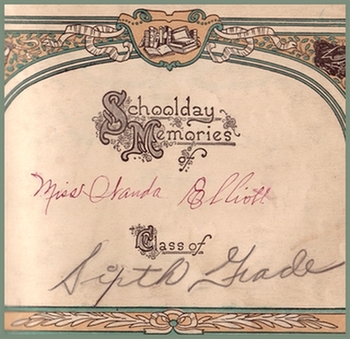 Schoolday
Memories
of
Miss Wanda Elliott
Class of
Sixth Grade